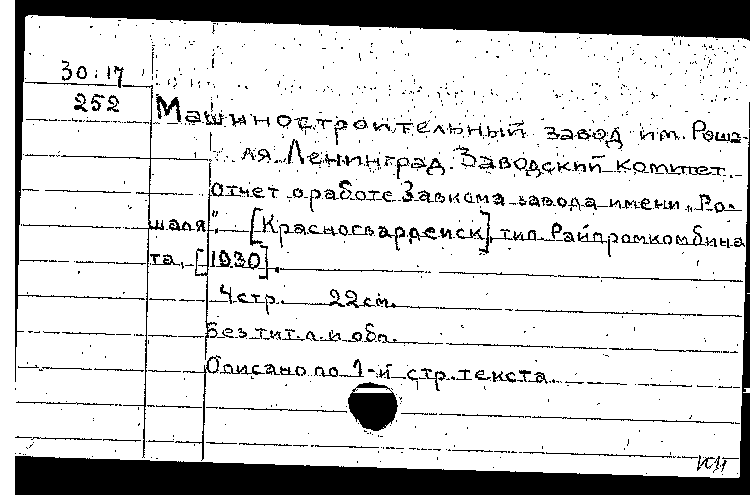 30:17
252
Машиностроительный завод им. Роша-
ля. Ленинград. Заводский комитет.
Отчет о работе Завкома завода имени „Ро-
шаля". [Красногвардейск], тип. Райпромкомбина
та, [1930].
4 стр. 22 см.
Без тит. л. и обл.
Описано по 1-й стр. текста.